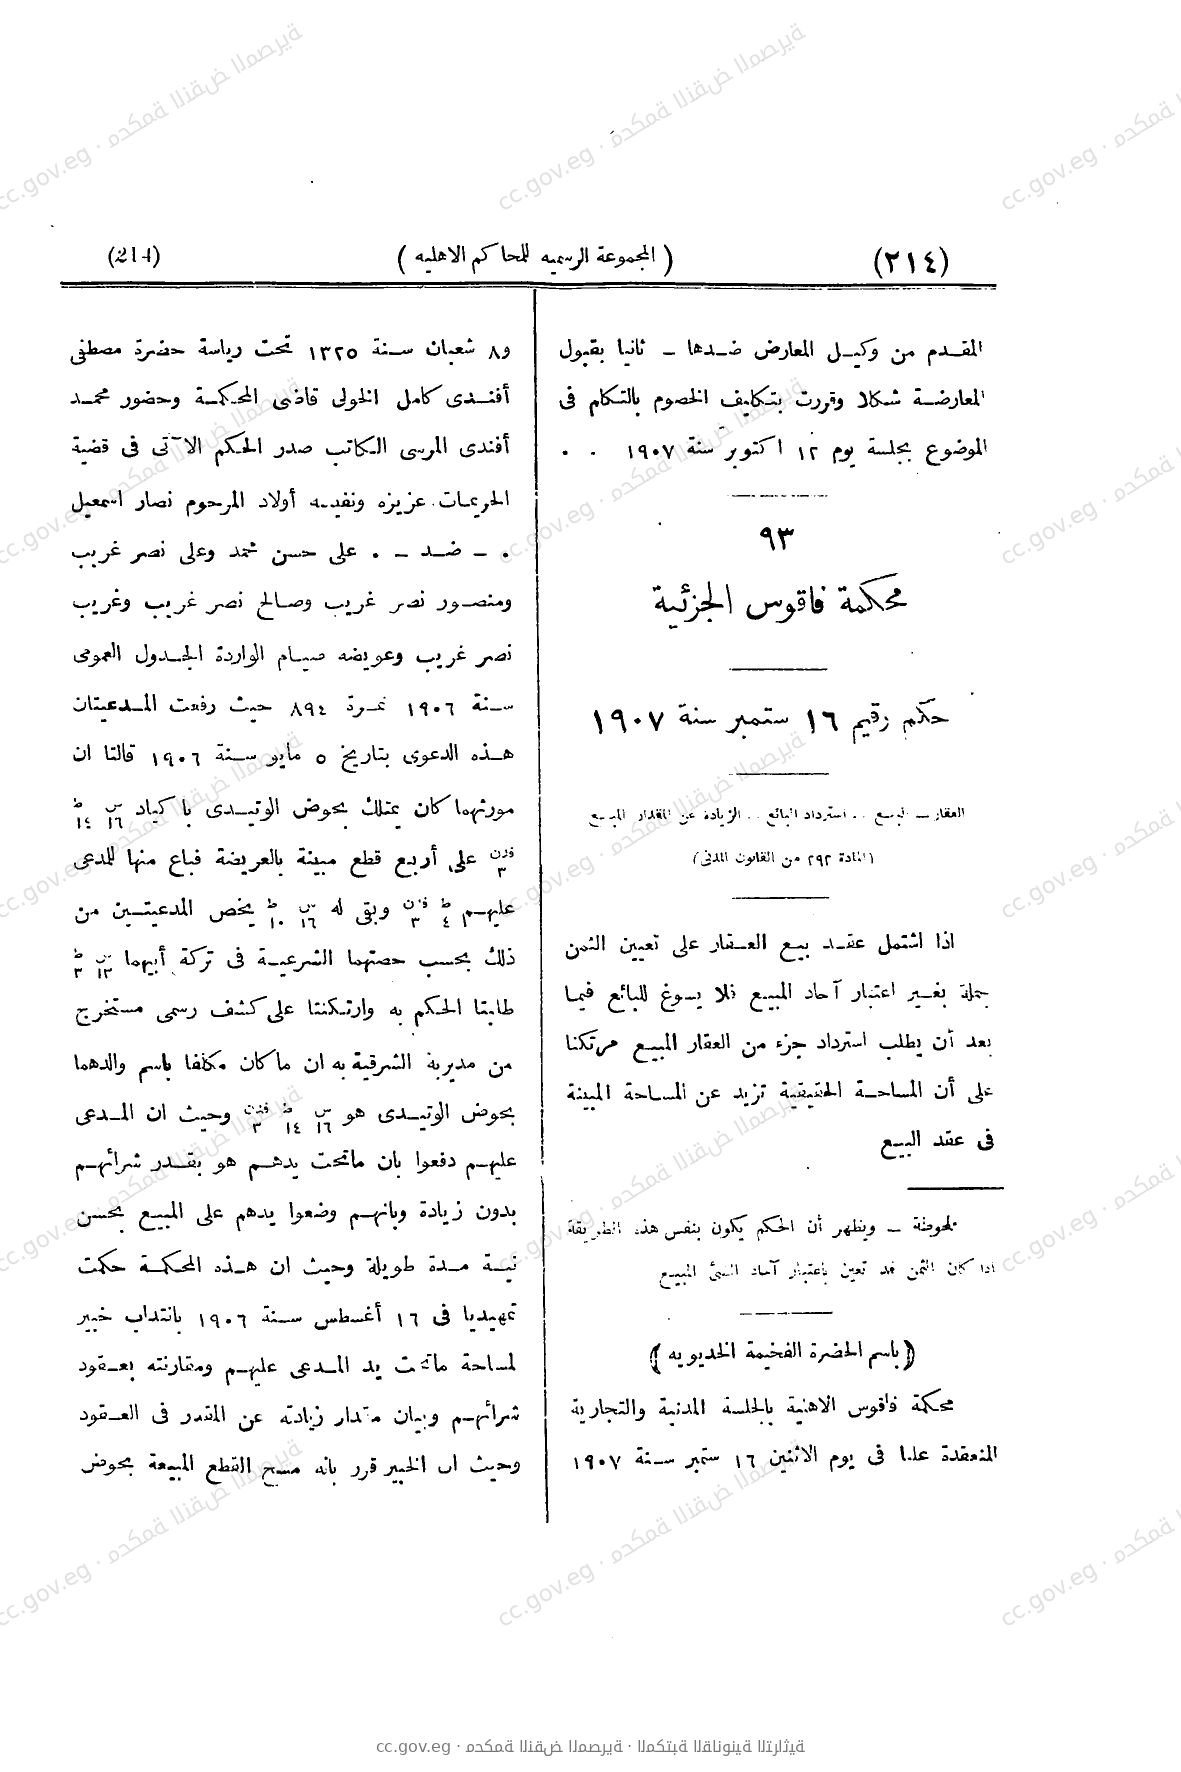 (٢١٤)
( المجموعة الرسميه للمحاكم الاهليه )
(214)
المقدم من وكيل المعارض ضدها – ثانيا بقبول
المعارضة شكلا وقررت بتكليف الخصوم بالتكلم فى
الموضوع بجلسة يوم ١٢ اكتوبر سنة ١٩٠٧ . .
٩٣
محكمة فاقوس الجزئية
حكم رقيم ١٦ ستمبر سنة ١٩٠٧
العقار – البيع . . استرداد البائع . . الزيادة عن المقدار المبيع
(المادة ٢٩٢ من القانون المدنى)
اذا اشتمل عقد بيع العقار على تعيين الثمن
جملة بغير اعتبار آحاد المبيع فلا يسوغ للبائع فيما
بعد أن يطلب استرداد جزء من العقار المبيع مرتكنا
على أن المساحة الحقيقية تزيد عن المساحة المبينة
فى عقد البيع
ملحوظة – ويظهر أن الحكم يكون بنفس هذه الطريقة
اذا كان الثمن قد تعين باعتبار آحاد الشئ المبيع
( باسم الحضرة الفخيمة الخديويه )
محكمة فاقوس الاهلية بالجلسة المدنية والتجارية
المنعقدة علنا فى يوم الاثنين ١٦ ستمبر سنة ١٩٠٧
و٨ شعبان سنة ١٣٢٥ تحت رياسة حضرة مصطفى
أفندى كامل الخولى قاضى المحكمة وحضور محمد
أفندى المرسى الكاتب صدر الحكم الآتى فى قضية
الحريمات عزيزه ونفيسه أولاد المرحوم نصار اسمعيل
. – ضد – . على حسن محمد وعلى نصر غريب
ومنصور نصر غريب وصالح نصر غريب وغريب
نصر غريب وعويضه صيام الواردة الجدول العمومى
سنة ١٩٠٦ نمرة ٨٩٤ حيث رفعت المدعيتان
هذه الدعوى بتاريخ ٥ مايو سنة ١٩٠٦ قالتا ان
مورثهما كان يمتلك بحوض الوتيدى باكياد س ١٦ ط ١٤
فدن ٣ على أربع قطع مبينة بالعريضة فباع منها للمدعى
عليهم ط ٤ فدن ٣ وبقى له س ١٦ ط ١٠ يخص المدعيتين من
ذلك بحسب حصتهما الشرعية فى تركة أبيهما س ١٣ ط ٣
طلبتا الحكم به وارتكنتا على كشف رسمى مستخرج
من مديرية الشرقية به ان ما كان مكلفا باسم والدهما
بحوض الوتيدى هو س ١٦ ط ١٤ فدن ٣ وحيث ان المدعى
عليهم دفعوا بان ماتحت يدهم هو بقدر شرائهم
بدون زيادة وبانهم وضعوا يدهم على المبيع بحسن
نية مدة طويلة وحيث ان هذه المحكمة حكمت
تمهيديا فى ١٦ أغسطس سنة ١٩٠٦ بانتداب خبير
لمساحة ماتحت يد المدعى عليهم ومقارنته بعقود
شرائهم وبيان مقدار زيادته عن المقدر فى العقود
وحيث ان الخبير قرر بانه مسح القطع المبيعة بحوض
cc.gov.eg · محكمة النقض المصرية · المكتبة القانونية التراثية